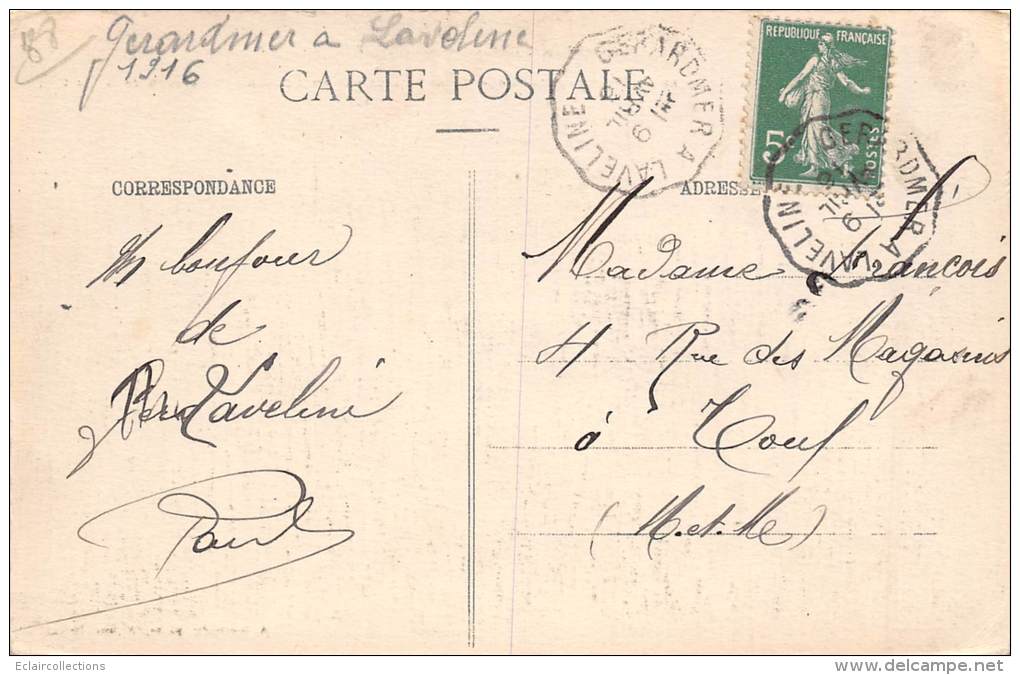 88
Gerardmer a Laveline
1916
CARTE POSTALE
GERARDMER A LAVELINE
REPUBLIQUE FRANÇAISE
5c
POSTES
GERARDMER A LAVELINE
CORRESPONDANCE
ADRESSE
Un bonjour
de
Laveline
Paul
Madame François
4 Rue des Magasins
à Toul
(M.et.M)
Eclaircollections
http://eclaircollections.delcampe.net